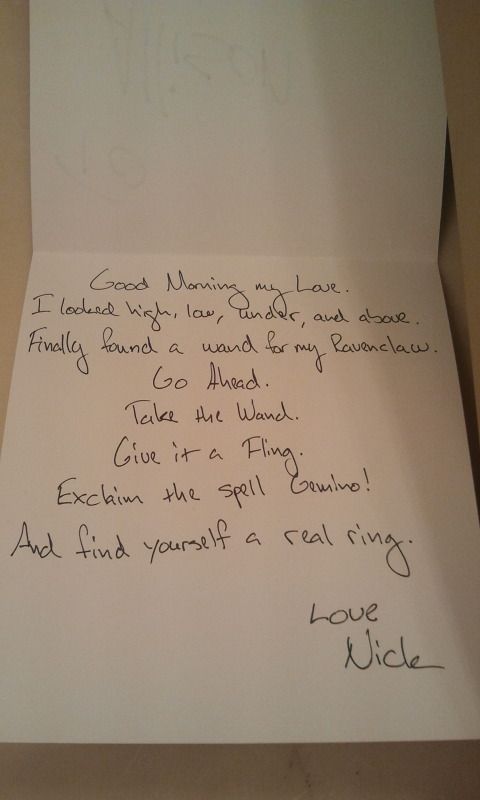 Good Morning my Love.
I looked high, low, under, and above.
Finally found a wand for my Ravenclaw.
Go Ahead.
Take the Wand.
Give it a Fling.
Exclaim the spell Gemino!
And find yourself a real ring.
Love
Nick